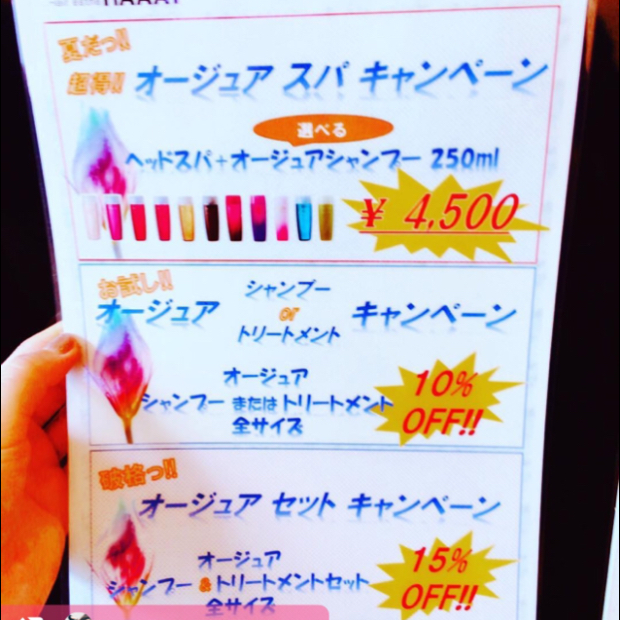 HAAAT
夏だっ!!
超得!! オージュア スパ キャンペーン
選べる
ヘッドスパ+オージュアシャンプー 250ml
¥ 4,500
お試し!!
オージュア シャンプー or トリートメント キャンペーン
オージュア
シャンプー または トリートメント
全サイズ
10% OFF!!
破格っ!!
オージュア セット キャンペーン
オージュア
シャンプー & トリートメントセット
全サイズ
15% OFF!!